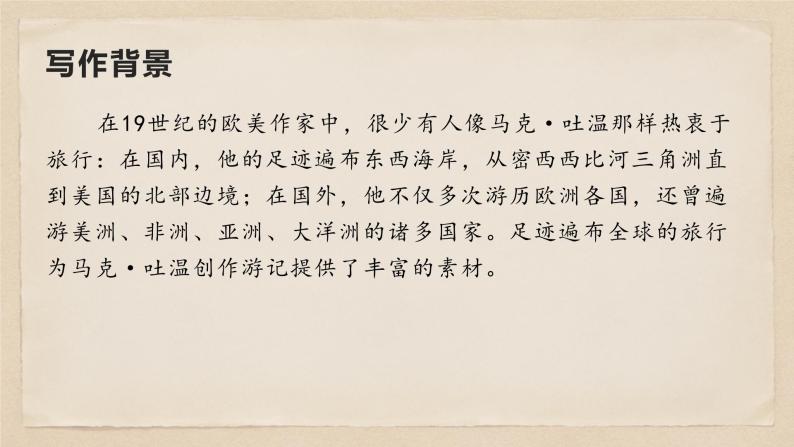 写作背景
在19世纪的欧美作家中，很少有人像马克·吐温那样热衷于
旅行：在国内，他的足迹遍布东西海岸，从密西西比河三角洲直
到美国的北部边境；在国外，他不仅多次游历欧洲各国，还曾遍
游美洲、非洲、亚洲、大洋洲的诸多国家。足迹遍布全球的旅行
为马克·吐温创作游记提供了丰富的素材。